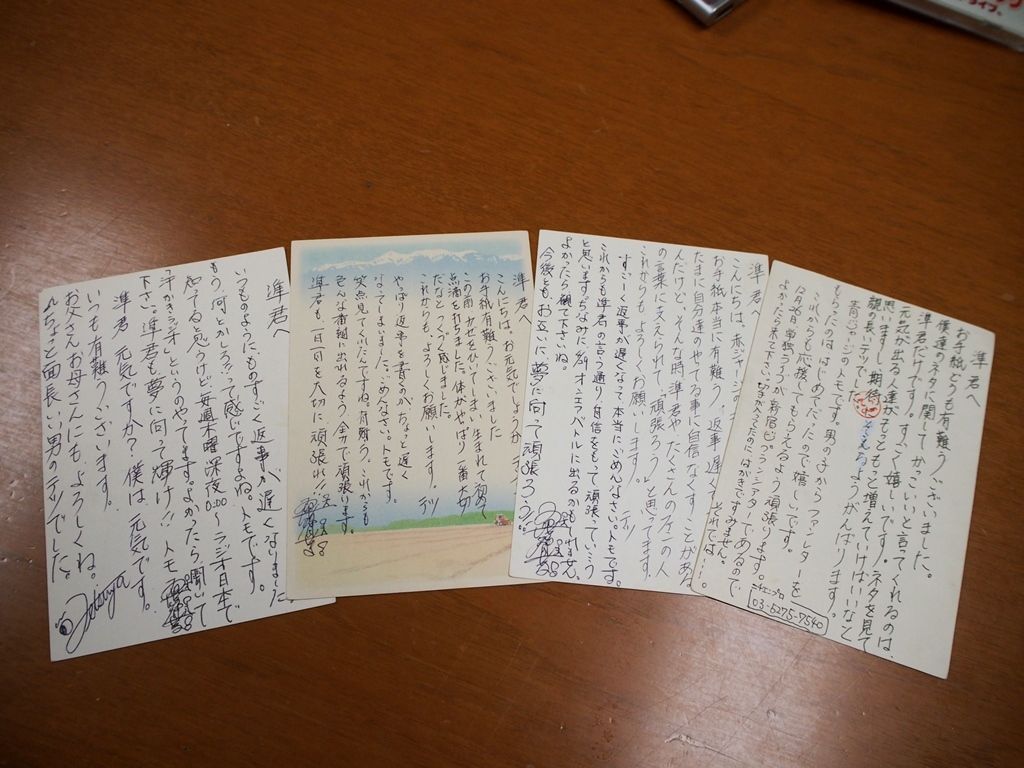 準君へ
お手紙どうも有難うございました。
僕達のネタに関して、かっこいいと言ってくれるのは、
準君だけです。すごく嬉しいです。ネタを見て
元気が出る人達がもっともっと増えていけばいいなと
思いますし、期待
ようがんばります。
顔の長いテツでした。
青色ジャージのトモです。男の子からファンレターを
もらったのははじめてだったので嬉しいです。
これからも応援してもらえるよう頑張ります。
よかったら来て下さい。
03-5275-7540
準君へ
こんにちは。赤ジャージの
テツ
お手紙本当に有難う。返事遅くて
すみません。
たまに自分達のやてる事に自信なくすことがある
んだけど、そんな時準君や、たくさんのファンの人
の言葉に支えられて、「頑張ろう」と思ってます。
これからも、よろしくお願いします。
それでは…。
すごーく返事が遅くなって本当にごめんなさい。トモです。
これからも準君の言う通り、自信をもって頑張っていこう
と思います。ちなみに
オンエアバトルに出るかもしれません。
よかったら観て下さいね。
今後とも、お互いに夢に向って頑張ろうね。
準君へ
こんにちは。お元気でしょうか
お手紙有難うございました
この前、カゼをひいてしまい、生まれて初めて
点滴を打ちました。体がやっぱり一番大切
だなとつくづく感じました。
これからも、よろしくお願いします。テツ
やっぱり返事を書くのが、ちょっと遅く
なってしまいました。ごめんなさい。トモです。
笑点見てくれたんですね。有難う。これからも
色んな番組に出れるよう、全力で頑張ります。
準君も、一日一日を大切に頑張れ!!
準君へ
いつものようにものすごく返事が遅くなりました
もう、何とかしろ!って感じですよね。トモです。
知ってると思うけど、毎週木曜深夜0:00〜ラジオ日本で
というのやってます。よかったら聞いて
下さい。準君も夢に向って輝け!! トモ
準君 元気ですか？僕は、元気です。
いつも有難うございます。
お父さんお母さんにもよろしくね。
ちょっと面長いい男のテツでした。